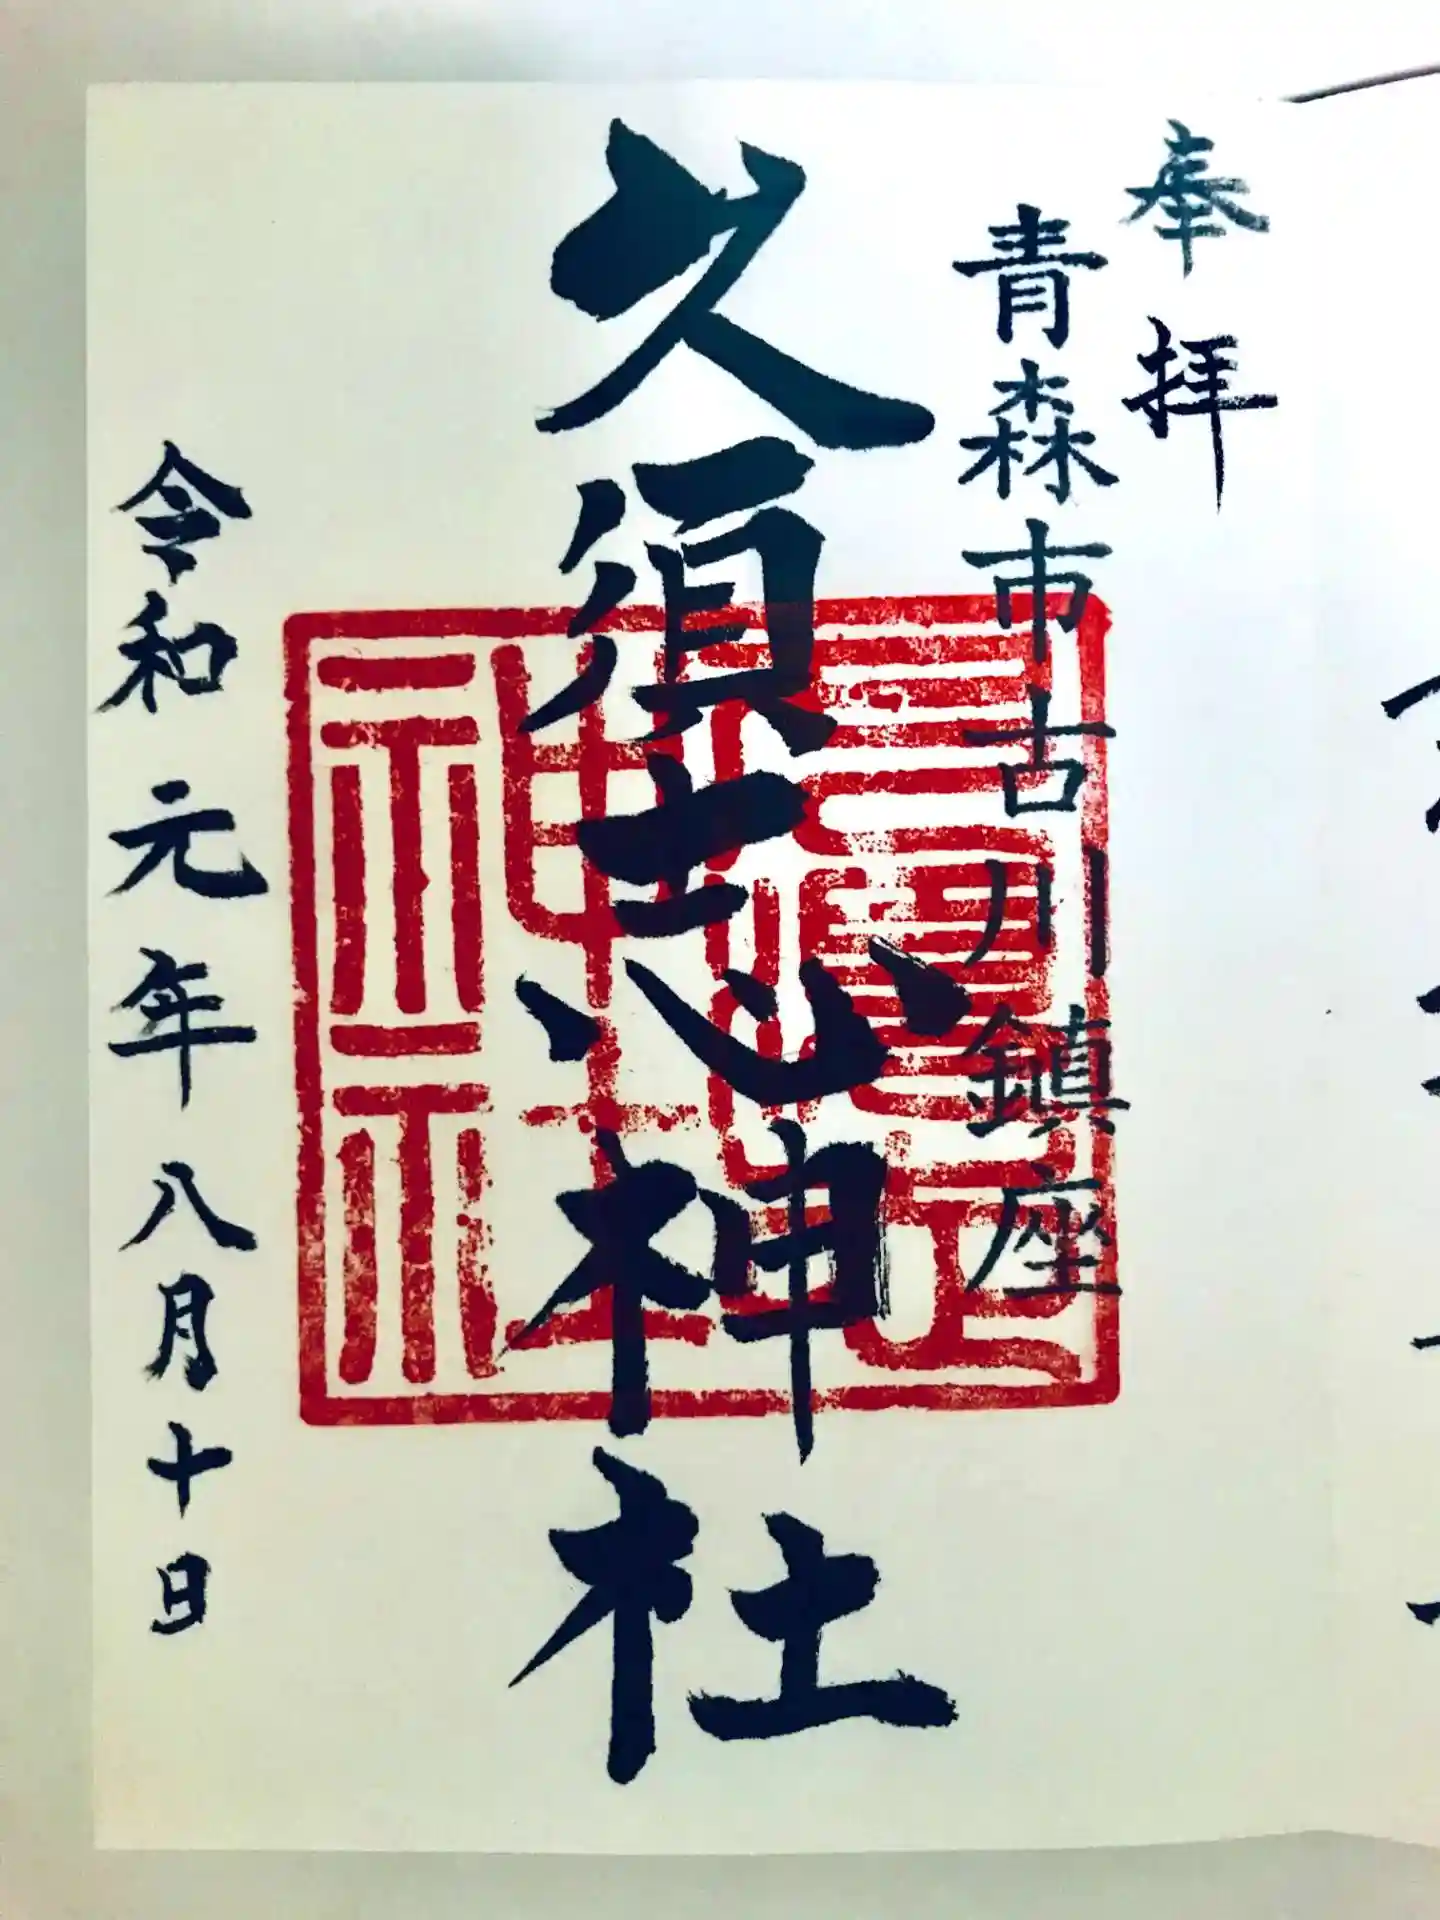 奉拝
青森市古川鎮座
久須志神社
令和元年八月十日